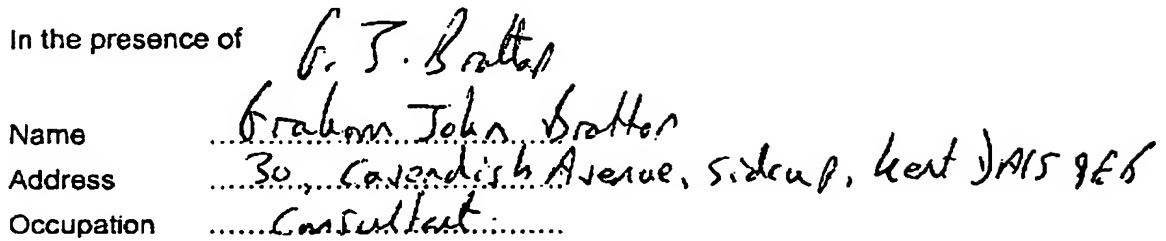 In the presence of G. J. Bratton
Name Graham John Bratton
Address 30, Cavendish Avenue, Sidcup, Kent DA15 9E
Occupation Consultant